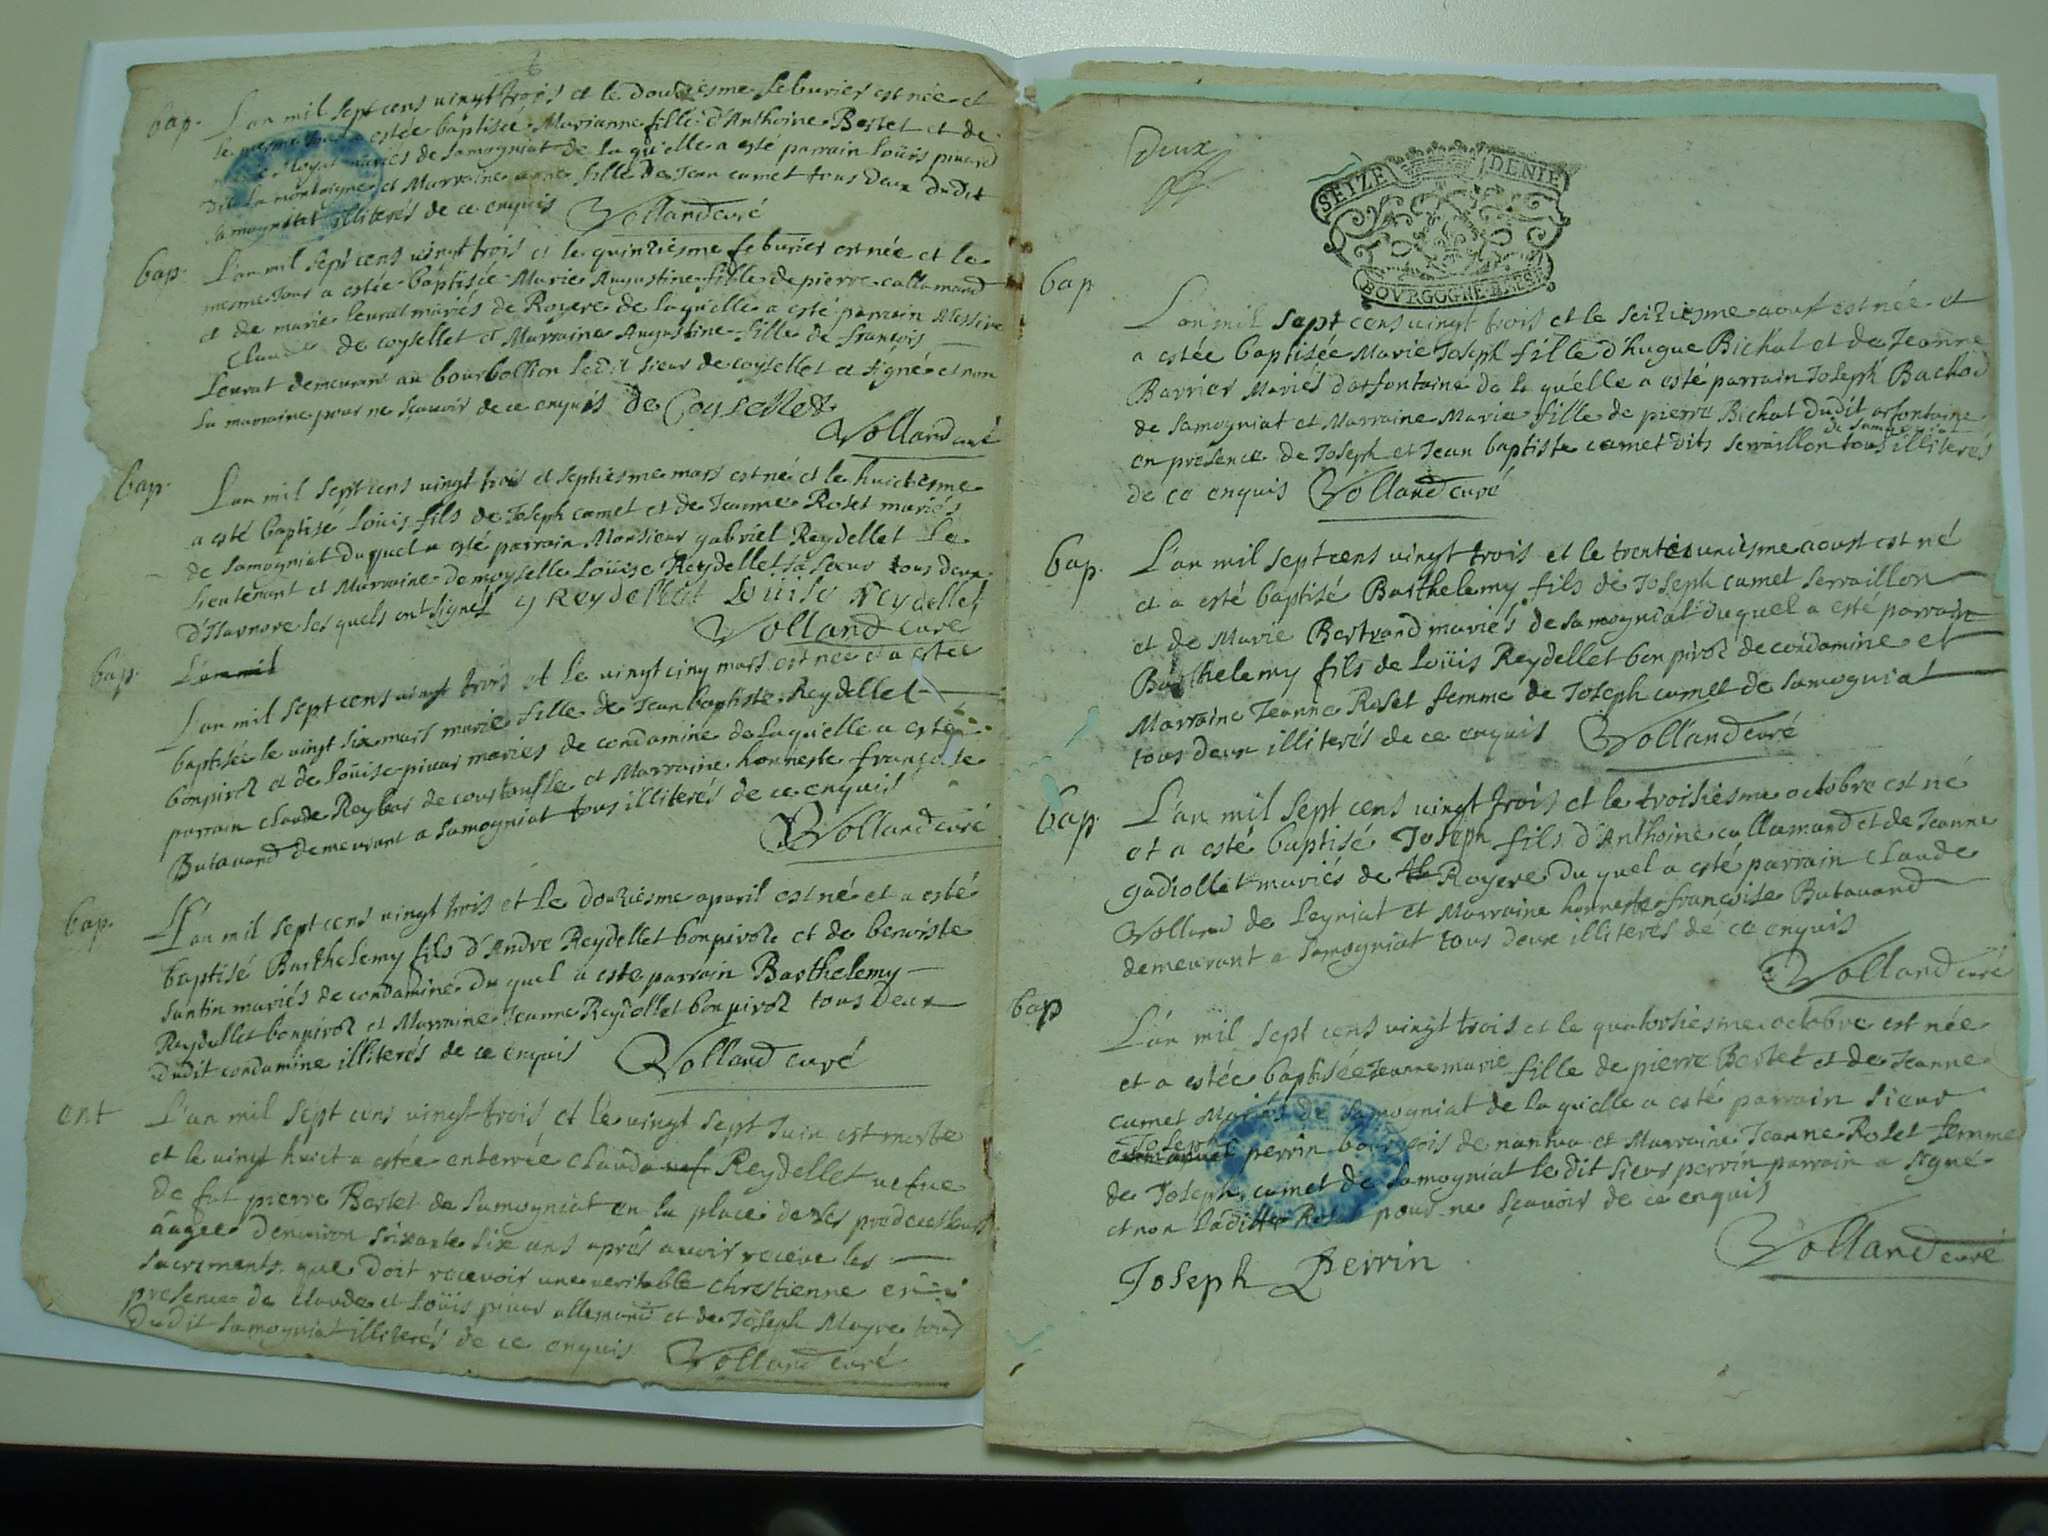 bap. L'an mil sept cens vingt trois et le douziesme feburier est née et
le mesme jour a estée baptisée Marianne fille d'Anthoine Bertet et de
mariés de Samogniat de la quelle a esté parrain Loüis
dit la montaigne et Marraine fille de Jean camet tous deux dudit
Samogniat illiterés de ce enquis Volland curé
bap. L'an mil sept cens vingt trois et le quinziesme feburier est née et le
mesme jour a estée baptisée Marie Augustine fille de pierre callamand
et de marie leurat mariés de Royere de la quelle a esté parrain Messire
Claude de coysellet et Marraine Augustine fille de françois
Leurat demeurans au bourbollion ledit sieur de coysellet a signé et non
la marraine pour ne sçavoir de ce enquis de Coysellet
Volland curé
bap. L'an mil sept cens vingt trois et septiesme mars est né et le huictiesme
a esté baptisé Loüis fils de Joseph camet et de Jeanne Roset mariés
de Samogniat du quel a esté parrain Monsieur gabriel Reydellet
Lieutenant et Marraine demoyselle Loüise Reydellet sa soeur tous deux
d'Isarnore les quels ont signés g Reydellet Loüise Reydellet
Volland curé
bap. L'an mil
L'an mil sept cens vingt trois et le vingt cinq mars est née et a estée
baptisée le vingt six mars marie fille de Jean baptiste Reydellet
bonpivoz et de Loüise picus mariés de condamine de la quelle a esté
parrain claude Reybas de coustoufle et Marraine honneste françoise
Butavand demeurant a Samogniat tous illiterés de ce enquis
Volland curé
bap. L'an mil sept cens vingt trois et le douziesme apvril est né et a esté
baptisé Barthelemy fils d'Andre Reydellet bonpivoz et de benoiste
santin mariés de condamine du quel a esté parrain Barthelemy
Reydellet bonpivoz et Marraine Jeanne Reydellet bonpivoz tous deux
dudit condamine illiterés de ce enquis Volland curé
ent L'an mil sept cens vingt trois et le vingt sept Juin est morte
et le vingt huict a estée enterrée clauda Reydellet vefve
de fut pierre Bertet de Samogniat en la place de ses predecesseurs
aagée denviron soixante six ans aprés avoir receue les
sacrements que doit recevoir une veritable chrestienne en
presence de claude et Loüis picus allemand et de Joseph Mayre tous
dudit Samogniat illiterés de ce enquis Volland curé
Deux
SEIZE DENIE
BOVRGOGNE BRESSE
bap L'an mil sept cens vingt trois et le seiziesme aoust est née et
a estée baptisée Marie Joseph fille d'hugue Bichat et de Jeanne
Barrier Mariés d'arfontaine de la quelle a esté parrain Joseph Bachod
de Samogniat et Marraine Marie fille de pierre Bichat dudit arfontaine
en presence de Joseph et Jean baptiste camet dits serraillon de samogniat tous illiterés
de ce enquis Volland curé
bap. L'an mil sept cens vingt trois et le trente uniesme aoust est né
et a esté baptisé Barthelemy fils de Joseph camet serraillon
et de Marie Bertrand mariés de Samogniat du quel a esté parrain
Barthelemy fils de Loüis Reydellet bonpivoz de condamine et
Marraine Jeanne Roset femme de Joseph camet de Samogniat
tous deux illiterés de ce enquis Volland curé
bap. L'an mil sept cens vingt trois et le troisiesme octobre est né
et a esté baptisé Joseph fils d'Anthoine callamand et de Jeanne
gadiollet mariés de Royere du quel a esté parrain claude
Volland de Leyniat et Marraine honneste françoise Butavand
demeurant a Samogniat tous deux illiterés de ce enquis
Volland curé
bap L'an mil sept cens vingt trois et le quatorsiesme octobre est née
et a estée baptisée Jeanne marie fille de pierre Bertet et de Jeanne
camet Mariés de Samogniat de la quelle a esté parrain sieur
Joseph perrin bourgeois de nantua et Marraine Jeanne Roset femme
de Joseph camet de Samogniat le dit sieur perrin parrain a signé
et non laditte Roset pour ne sçavoir de ce enquis
Volland curé
Joseph Perrin